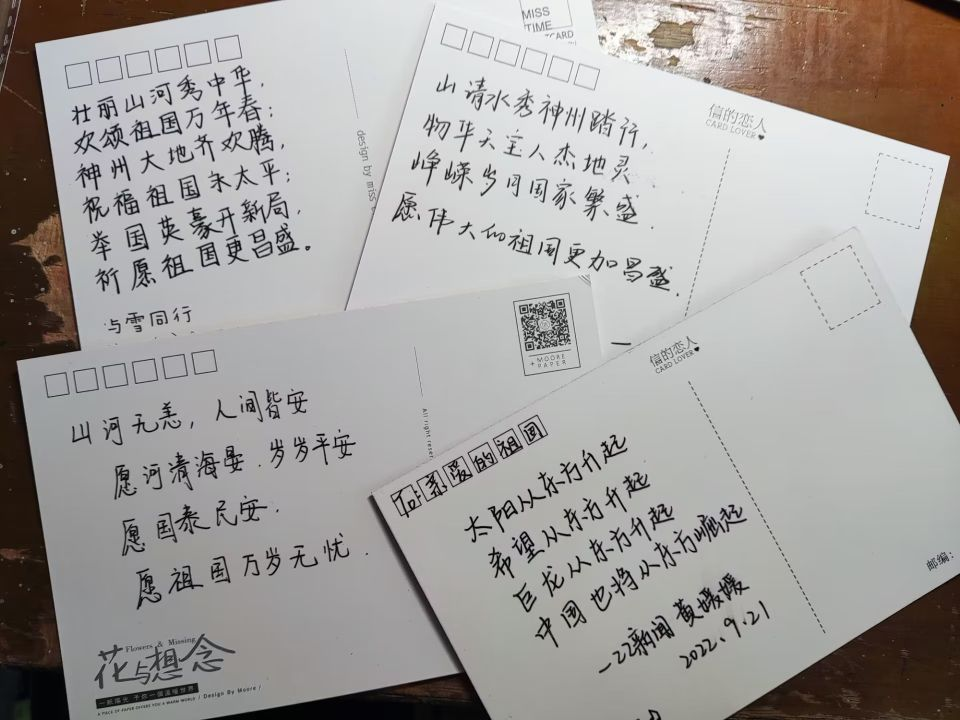 MISS
TIME
壮丽山河秀中华，
欢颂祖国万年春；
神州大地齐欢腾，
祝福祖国未太平；
举国英豪开新局，
祈愿祖国更昌盛。
与雪同行
design by miss
信的恋人
CARD LOVER
山清水秀神州踏行，
物华天宝人杰地灵
峥嵘岁月国家繁盛
愿伟大的祖国更加昌盛.
MOORE
PAPER
山河无恙，人间皆安
愿河清海晏.岁岁平安
愿国泰民安.
愿祖国万岁无忧.
All right reser
Flowers & Missing
花与想念
一紙陽光 予你一個溫暖世界
A PIECE OF PAPER OFFERS YOU A WARM WORLD / Design By Moore /
信的恋人
CARD LOVER
亲爱的祖国
太阳从东方升起
希望从东方升起
巨龙从东方升起
中国也将从东方崛起
—22新闻 黄媛媛
2022.9.21
邮编：